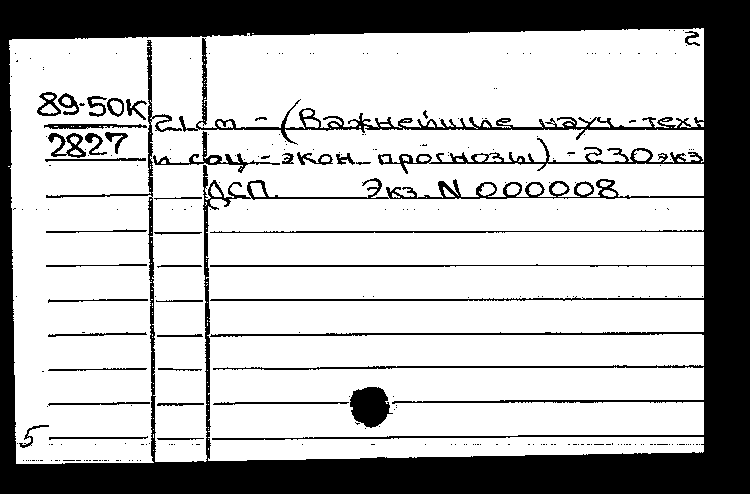 2
89-50К
2827
21 cm - (Важнейшие науч.-техн
и соц.-экон. прогнозы). - 230 экз
ДСП. Экз. N 000008.
5